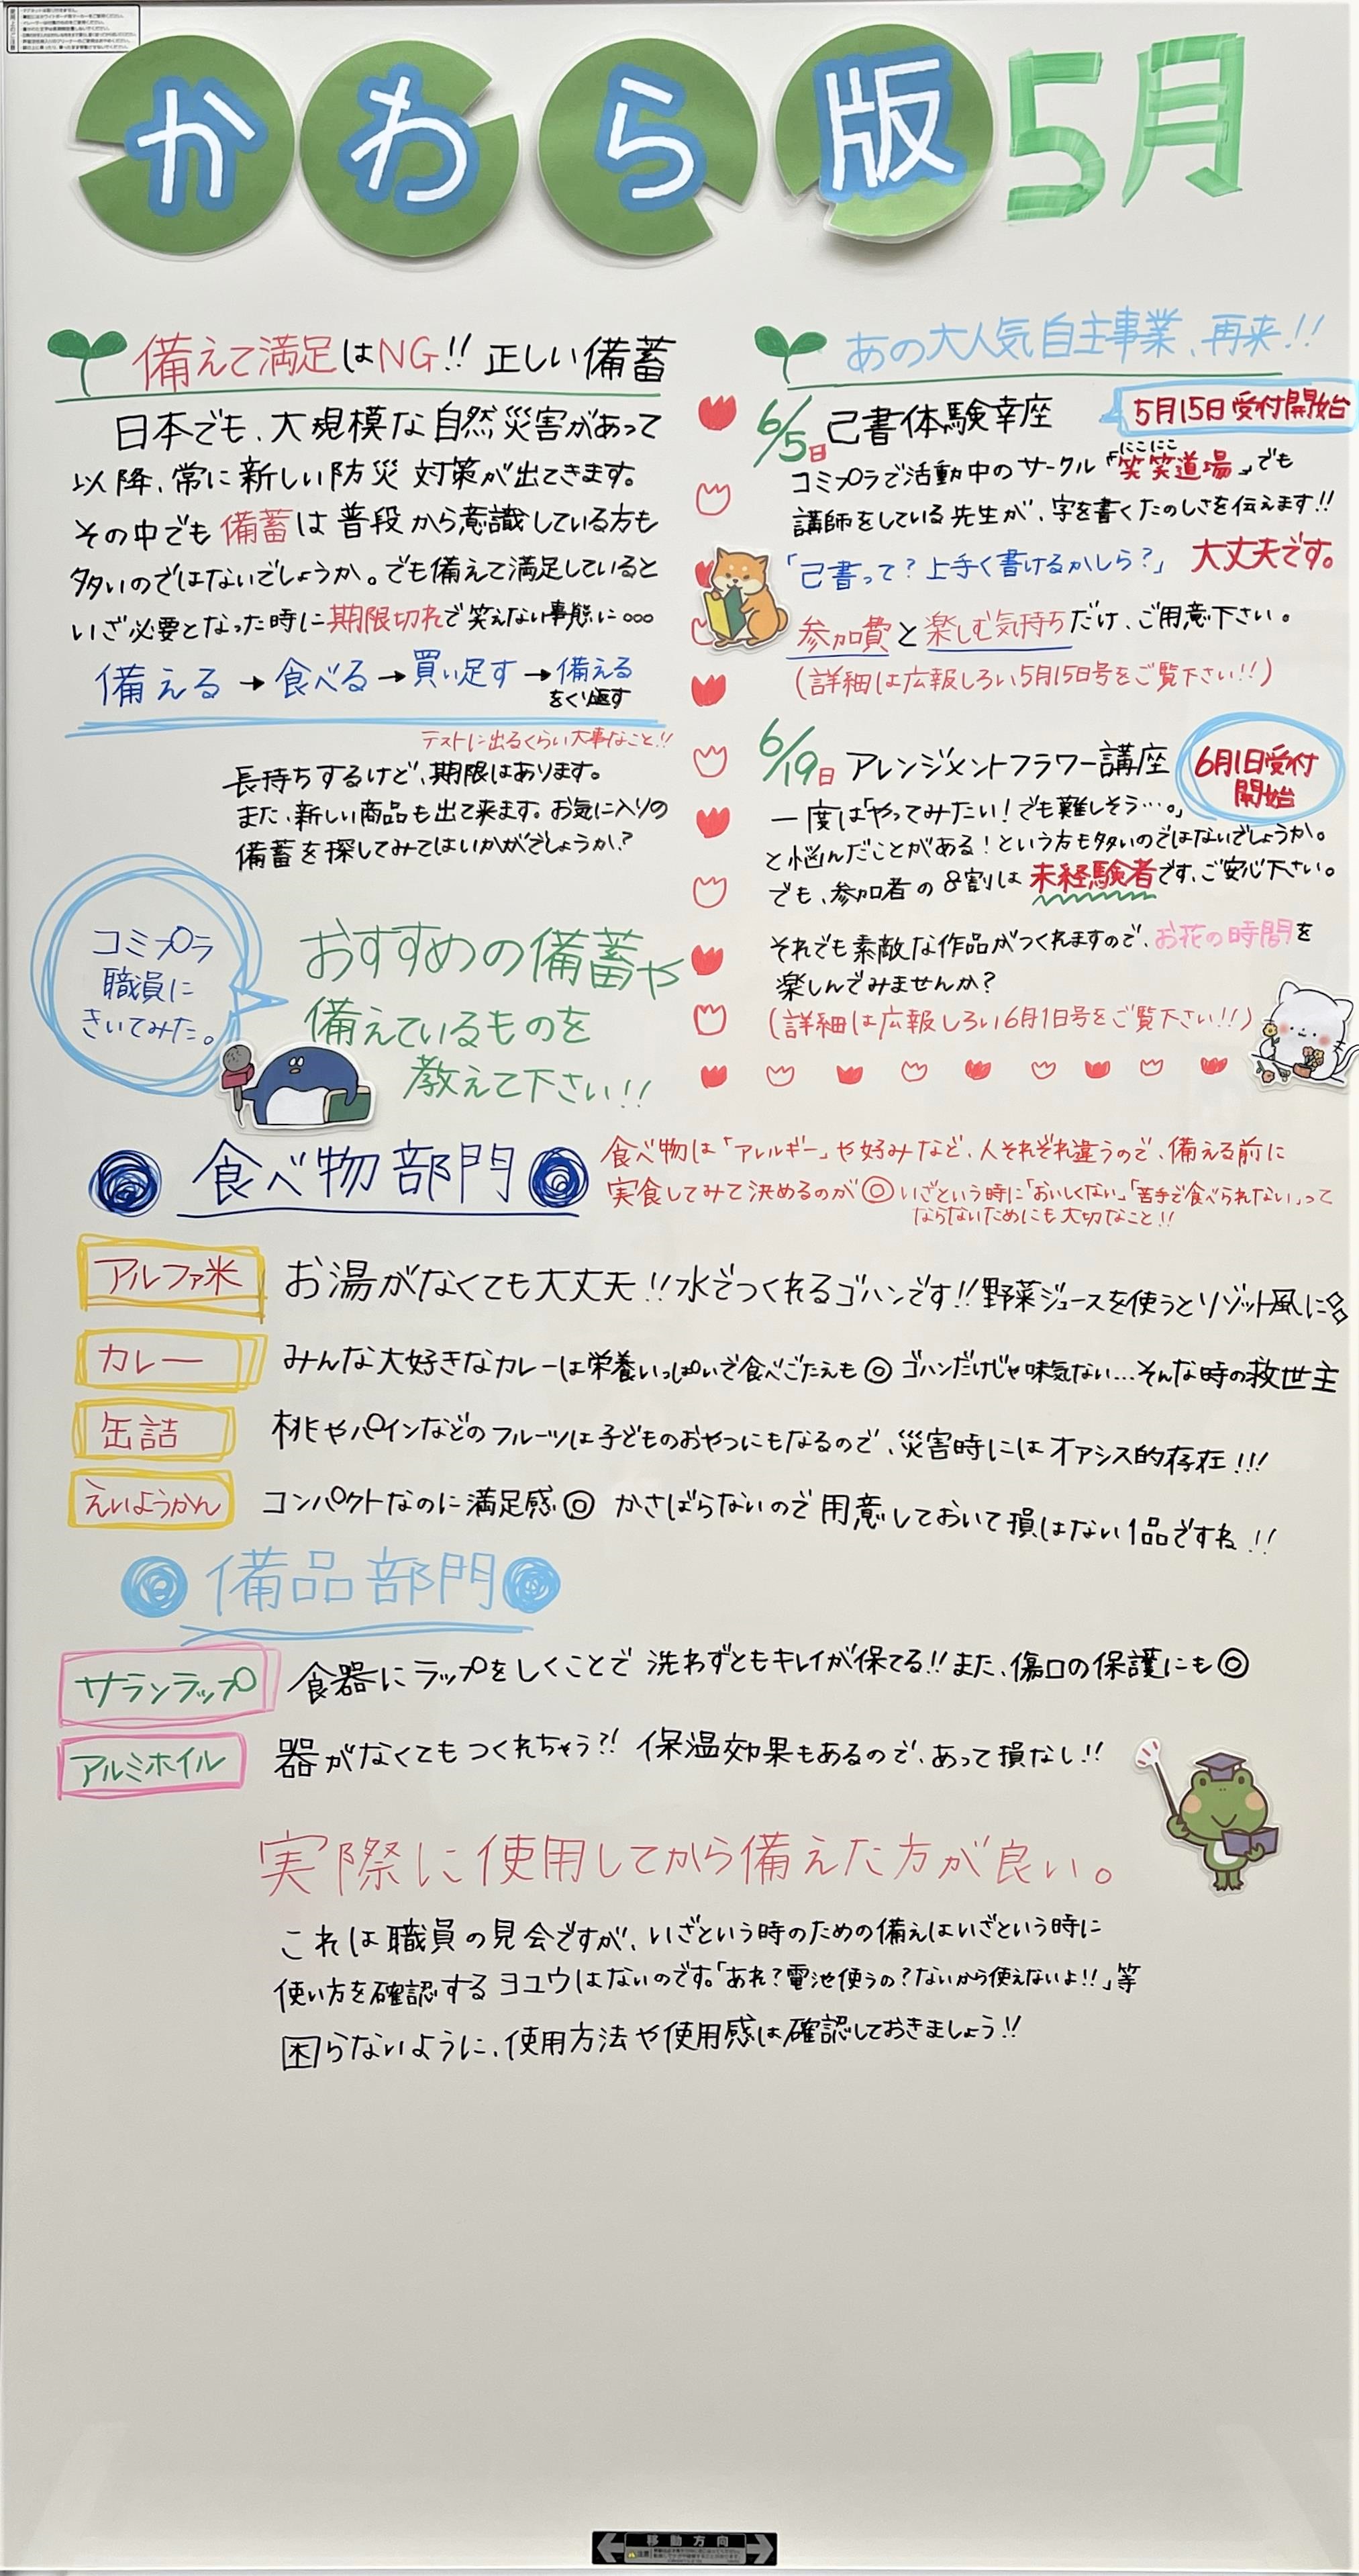 かわら版 5月
備えて満足はNG!! 正しい備蓄
日本でも、大規模な自然災害があって
以降、常に新しい防災対策が出てきます。
その中でも備蓄は普段から意識している方も
多いのではないでしょうか。でも備えて満足していると
いざ必要となった時に期限切れで笑えない事態に…
備える→食べる→買い足す→備える
をくり返す
テストに出るくらい大事なこと!!
長持ちするけど、期限はあります。
また、新しい商品も出て来ます。お気に入りの
備蓄を探してみてはいかがでしょうか?
あの大人気自主事業、再来!!
6/5日 己書体験幸座
5月15日受付開始
にこにこ
コミプラで活動中のサークル「笑笑道場」でも
講師をしている先生が、字を書くたのしさを伝えます!!
「己書って?上手く書けるかしら?」 大丈夫です。
参加費と楽しむ気持ちだけ、ご用意下さい。
(詳細は広報しろい5月15日号をご覧下さい!!)
6/19日 アレンジメントフラワー講座
6月1日受付
開始
一度は「やってみたい!でも難しそう…。」
と悩んだことがある!という方も多いのではないでしょうか。
でも、参加者の8割は未経験者です、ご安心下さい。
それでも素敵な作品がつくれますので、お花の時間を
楽しんでみませんか?
(詳細は広報しろい6月1日号をご覧下さい!!)
コミプラ
職員に
きいてみた。
おすすめの備蓄や
備えているものを
教えて下さい!!
食べ物部門
食べ物は「アレルギー」や好みなど、人それぞれ違うので、備える前に
実食してみて決めるのが◎いざという時に「おいしくない」「苦手で食べられない」って
ならないためにも大切なこと!!
アルファ米 お湯がなくても大丈夫!!水でつくれるゴハンです!!野菜ジュースを使うとリゾット風に
カレー みんな大好きなカレーは栄養いっぱいで食べごたえも◎ ゴハンだけじゃ味気ない…そんな時の救世主
缶詰 桃やパインなどのフルーツは子どものおやつにもなるので、災害時にはオアシス的存在!!!
えいようかん コンパクトなのに満足感◎ かさばらないので用意しておいて損はない1品ですね!!
備品部門
サランラップ 食器にラップをしくことで洗わずともキレイが保てる!!また、傷口の保護にも◎
アルミホイル 器がなくてもつくれちゃう?! 保温効果もあるので、あって損なし!!
実際に使用してから備えた方が良い。
これは職員の見会ですが、いざという時のための備えはいざという時に
使い方を確認するヨユウはないのです。「あれ?電池使うの?ないから使えないよ!!」等
困らないように、使用方法や使用感は確認しておきましょう!!
移動方向
注意